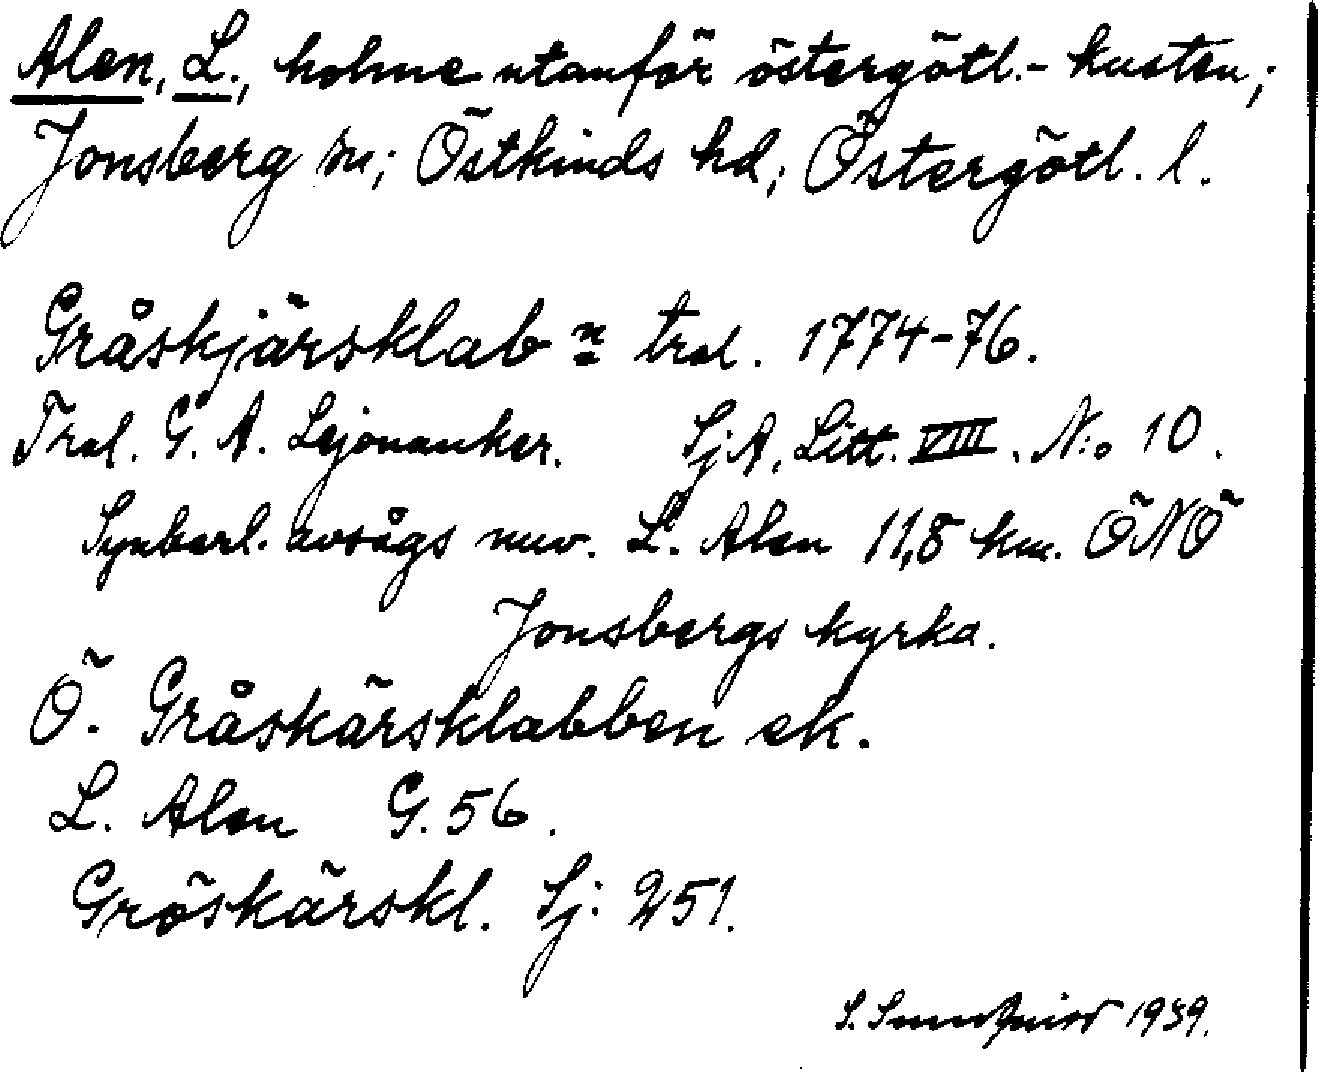 Alen, L., holme utanför östergötl.-kusten;
Jonsberg sn; Östkinds hd; Östergötl. l.
Gråskjärsklab n tral. 1774-76.
Tral. G. A. Lejonanker. SjA, Litt. VIII. N:o 10.
Synbarl. avsågs nuv. L. Alen 11,8 km. ÖNÖ
Jonsbergs kyrka.
Ö. Gråskärsklabben ek.
L. Alen G. 56.
Gröskärskl. Sj: 251.
S. 1939.